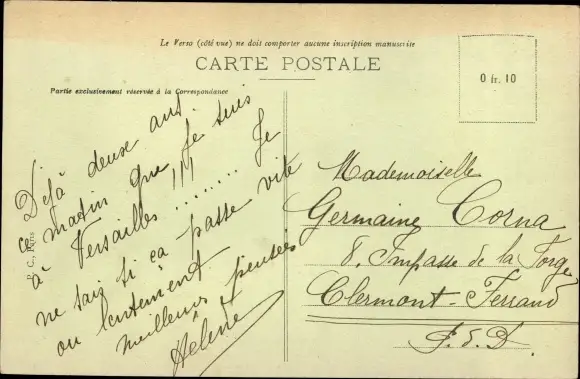 Le Verso (côté vue) ne doit comporter aucune inscription manuscrite
CARTE POSTALE
Partie exclusivement réservée à la Correspondance
0 fr. 10
Déjà deux ans
ce matin que je suis
à Versailles !!! ......... Je
ne sais si ça passe vite
ou lentement
meilleures pensées
Hélène
P. C., Paris
Mademoiselle
Germaine Corna
8, Impasse de la Forge
Clermont-Ferrand
P. d. D.